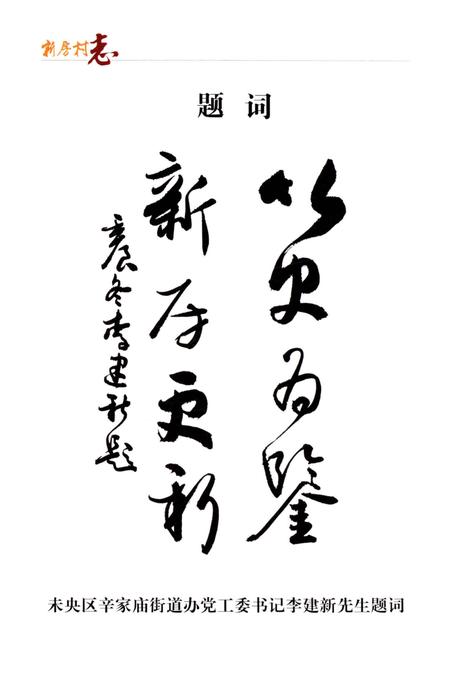 新房村志
题词
以史为鉴
新房更新
壬辰冬李建新题
未央区辛家庙街道办党工委书记李建新先生题词